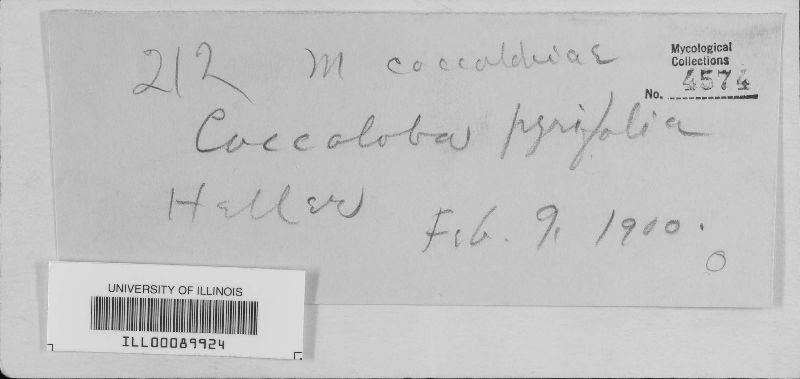 212 M coccolobiae
Mycological
Collections
No. 4574
Coccoloba pyrifolia
Heller
Feb. 9, 1900.
UNIVERSITY OF ILLINOIS
ILL00089924